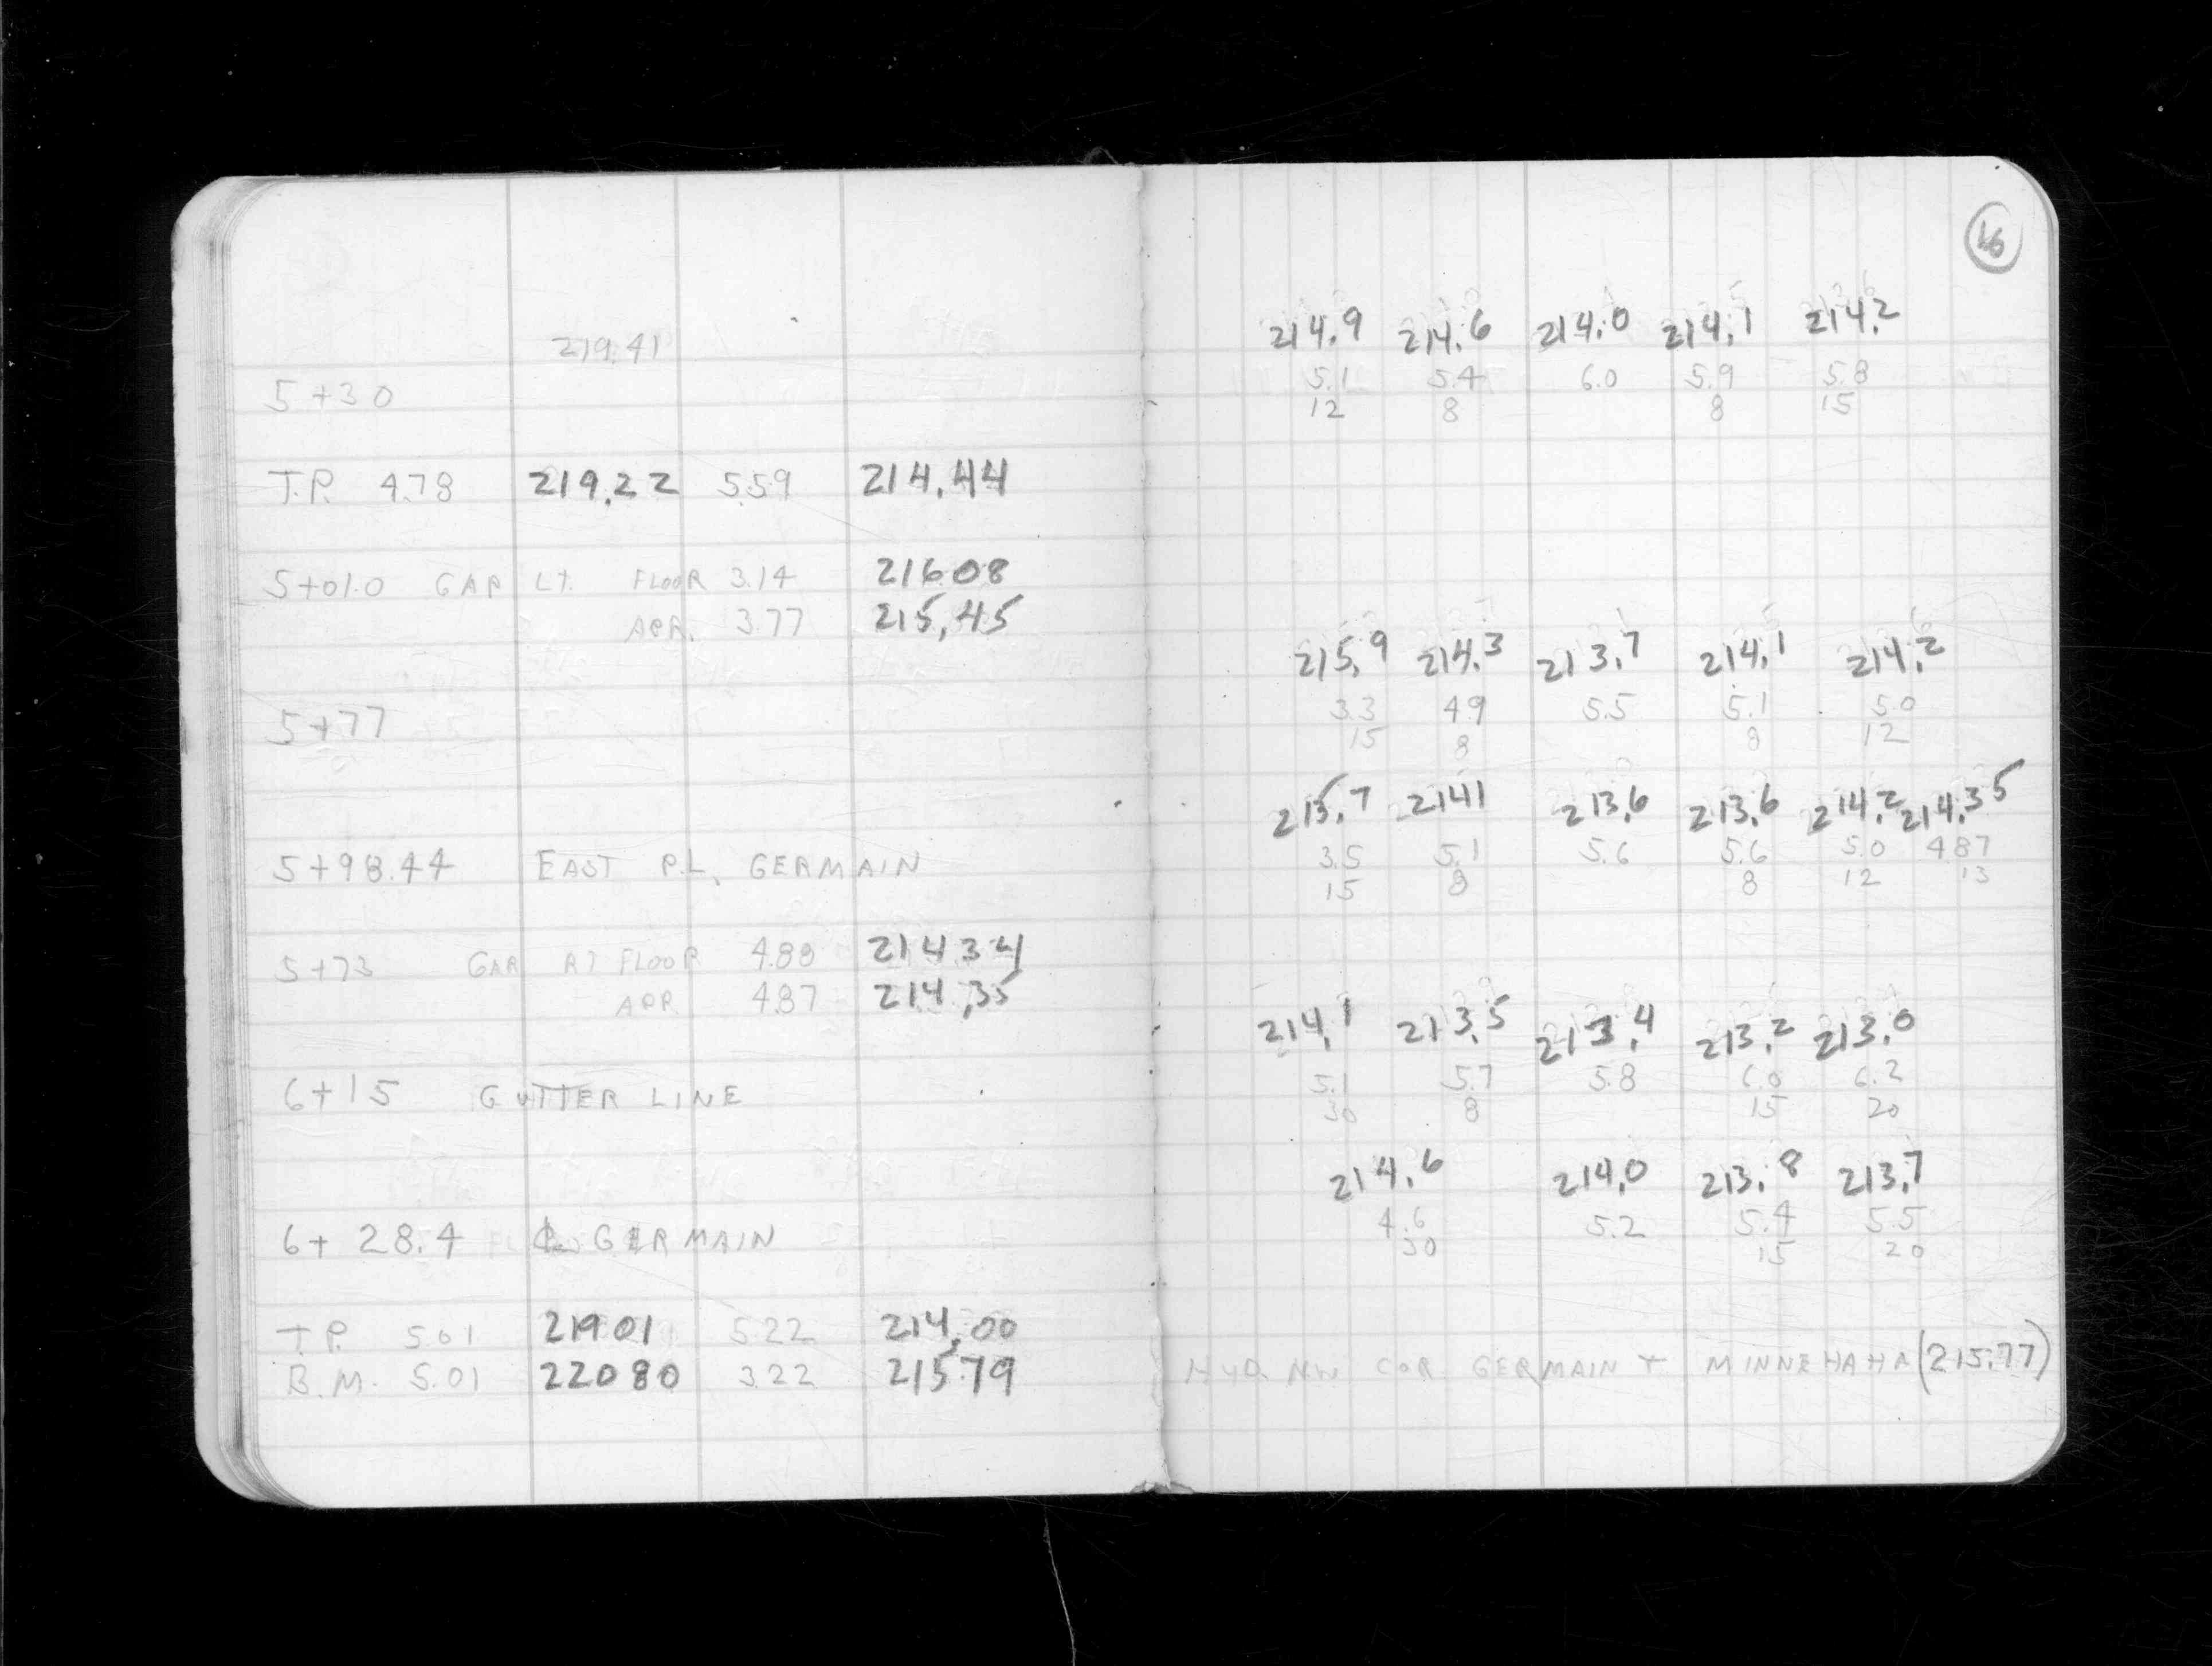 219.41
5+30
T.P. 4.78 219.22 5.59 214.44
5+01.0 GAR LT. FLOOR 3.14 216.08
APR. 3.77 215.45
5+77
5+98.44 EAST P.L. GERMAIN
5+73 GAR RT FLOOR 4.88 214 34
APR 4.87 214.35
6+15 GUTTER LINE
6+28.4 ℄ GERMAIN
T.P. 5.01 219 01 5.22 214.00
B.M. 5.01 220 80 3.22 215.79
46
214.9 214.6 214.0 214.1 214.2
5.1 5.4 6.0 5.9 5.8
12 8 8 15
215.9 214.3 213.7 214.1 214.2
3.3 4.9 5.5 5.1 5.0
15 8 8 12
215.7 2141 213.6 213.6 214.2 214.35
3.5 5.1 5.6 5.6 5.0 4.87
15 8 8 12 13
214.1 213.5 213.4 213.2 213.0
5.1 5.7 5.8 6.0 6.2
30 8 15 20
214.6 214.0 213.8 213.7
4.6 5.2 5.4 5.5
30 15 20
HYD. NW COR GERMAIN + MINNEHAHA (215.77)